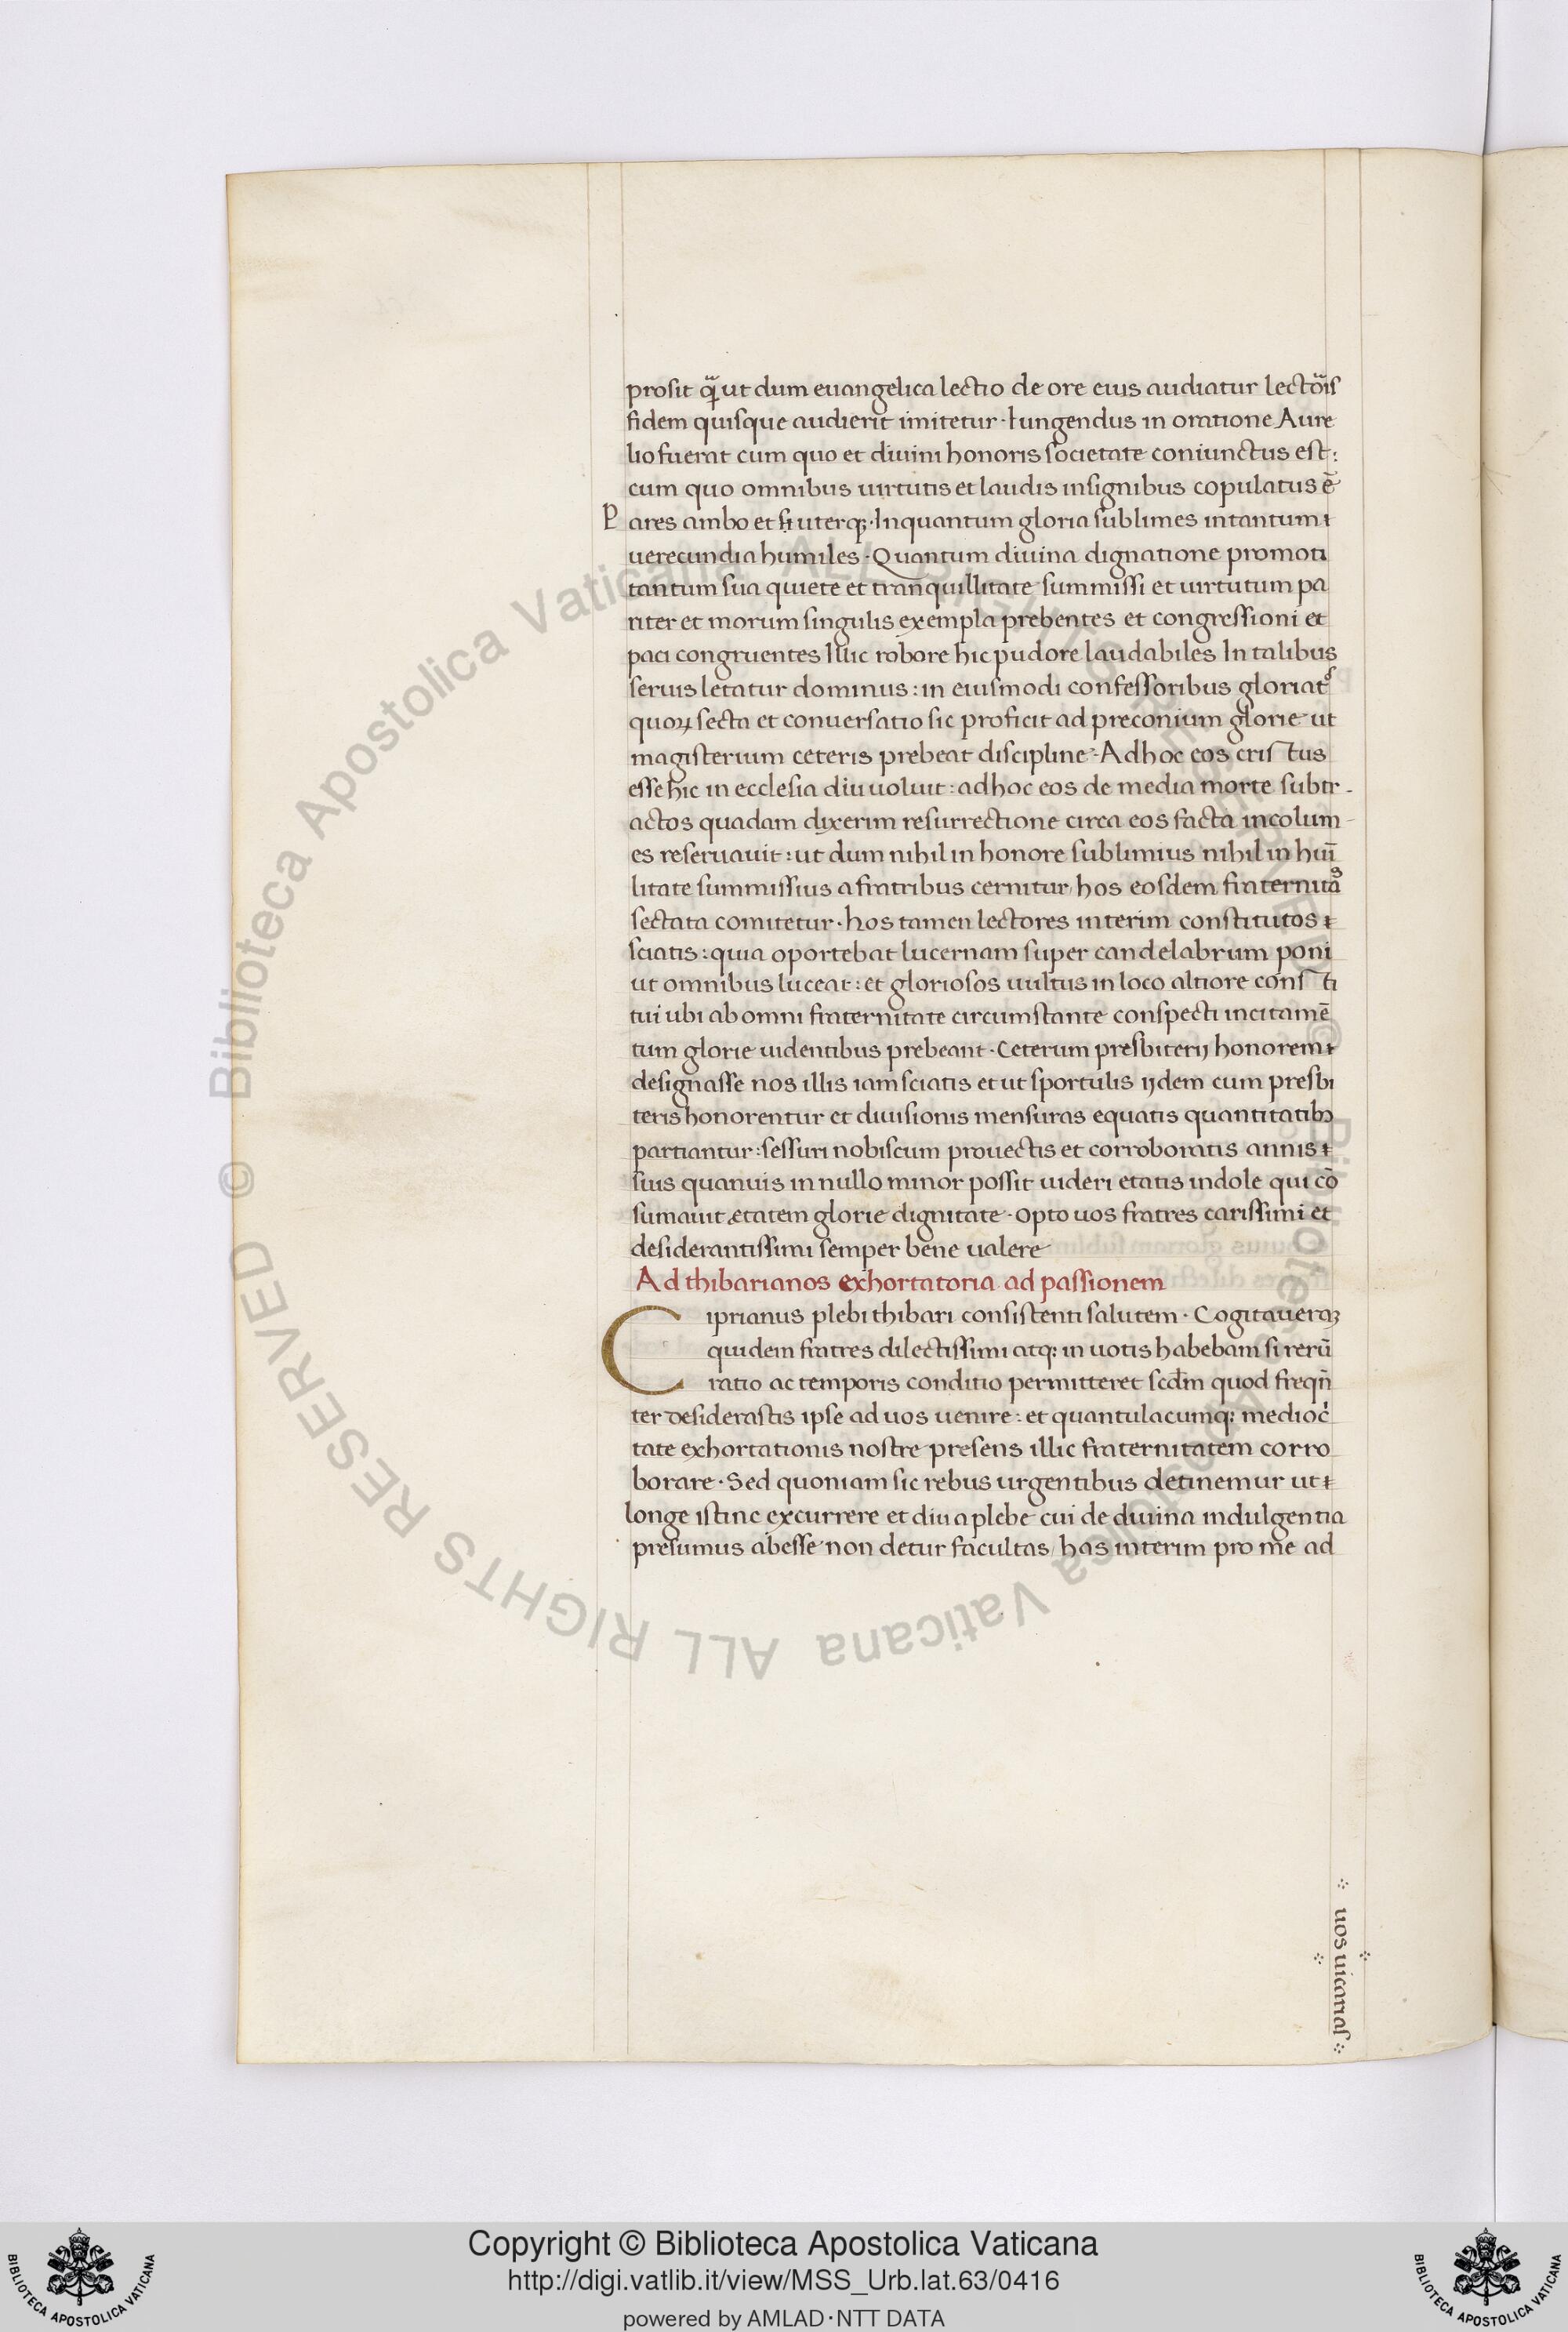 prosit qͣ ut dum euangelica lectio de ore eius audiatur lectoͣis
fidem quisque audierit imitetur · Iungendus in oratione Aure
lio fuerat cum quo et diuini honoris societate coniunctus est :
cum quo omnibus uirtutis et laudis insignibus copulatus ē
Pares ambo et uterq; · Inquantum gloria sublimes intantum
uerecundia humiles · Quantum diuina dignatione promoti
tantum sua quiete et tranquillitate summissi et uirtutum pa
riter et morum singulis exempla prebentes et congressioni et
paci congruentes Illic robore hic pudore laudabiles In talibus
seruis letatur dominus : in eiusmodi confessoribus gloriat᷒
quoꝝ secta et conuersatio sic proficit ad preconium glorie ut
magisterium ceteris prebeat discipline · Adhoc eos cristus
esse hic in ecclesia diu uoluit : adhoc eos de media morte subtr-
actos quadam dixerim resurrectione circa eos facta incolum-
es reseruauit : ut dum nihil in honore sublimius nihil in hūi
litate summissius a fratribus cernitur / hos eosdem fraternitaˢ
sectata comitetur · hos tamen lectores interim constitutos
sciatis : quia oportebat lucernam super candelabrum poni
ut omnibus luceat : et gloriosos uultus in loco altiore consti
tui ubi ab omni fraternitate circumstante conspecti incitamē
tum glorie uidentibus prebeant · Ceterum presbiterij honorem
designasse nos illis iam sciatis et ut sportulis ijdem cum presbi
teris honorentur et diuisionis mensuras equatis quantitatibꝫ
partiantur : sessuri nobiscum prouectis et corroboratis annis
suis quanuis in nullo minor possit uideri etatis indole qui cō
sumauit etatem glorie dignitate · Opto uos fratres carissimi et
desiderantissimi semper bene ualere
Ad thibarianos exhortatoria ad passionem
Ciprianus plebi thibari consistenti salutem · Cogitaueraꝫ
quidem fratres dilectissimi atq; in uotis habebam si rerū
ratio ac temporis conditio permitteret scdm̄ quod freqn̄
ter desiderastis ipse ad uos uenire : et quantulacumq; medioc᷑
tate exhortationis nostre presens illic fraternitatem corro
borare · Sed quoniam sic rebus urgentibus detinemur ut
longe istinc excurrere et diu a plebe cui de diuina indulgentia
presumus abesse non detur facultas / has interim pro me ad
uos uicarias
© Biblioteca Apostolica Vaticana ALL RIGHTS RESERVED
© Biblioteca Apostolica Vaticana ALL RIGHTS RESERVED
Copyright © Biblioteca Apostolica Vaticana
http://digi.vatlib.it/view/MSS_Urb.lat.63/0416
powered by AMLAD·NTT DATA
BIBLIOTECA APOSTOLICA VATICANA
BIBLIOTECA APOSTOLICA VATICANA